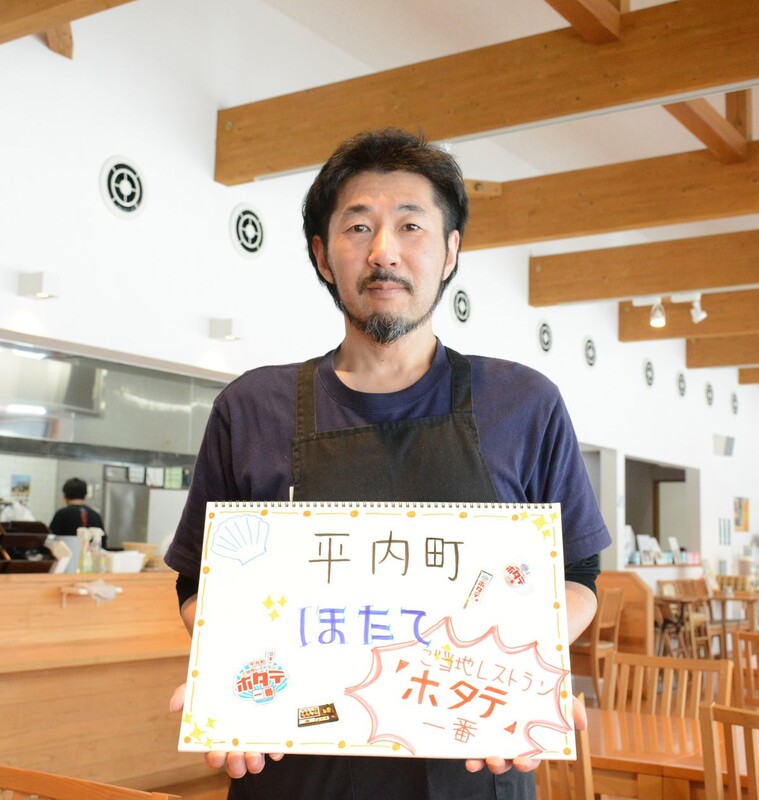 平内町
ほたて
ご当地レストラン
ホタテ
一番
ホタテ
一番
ホタテ